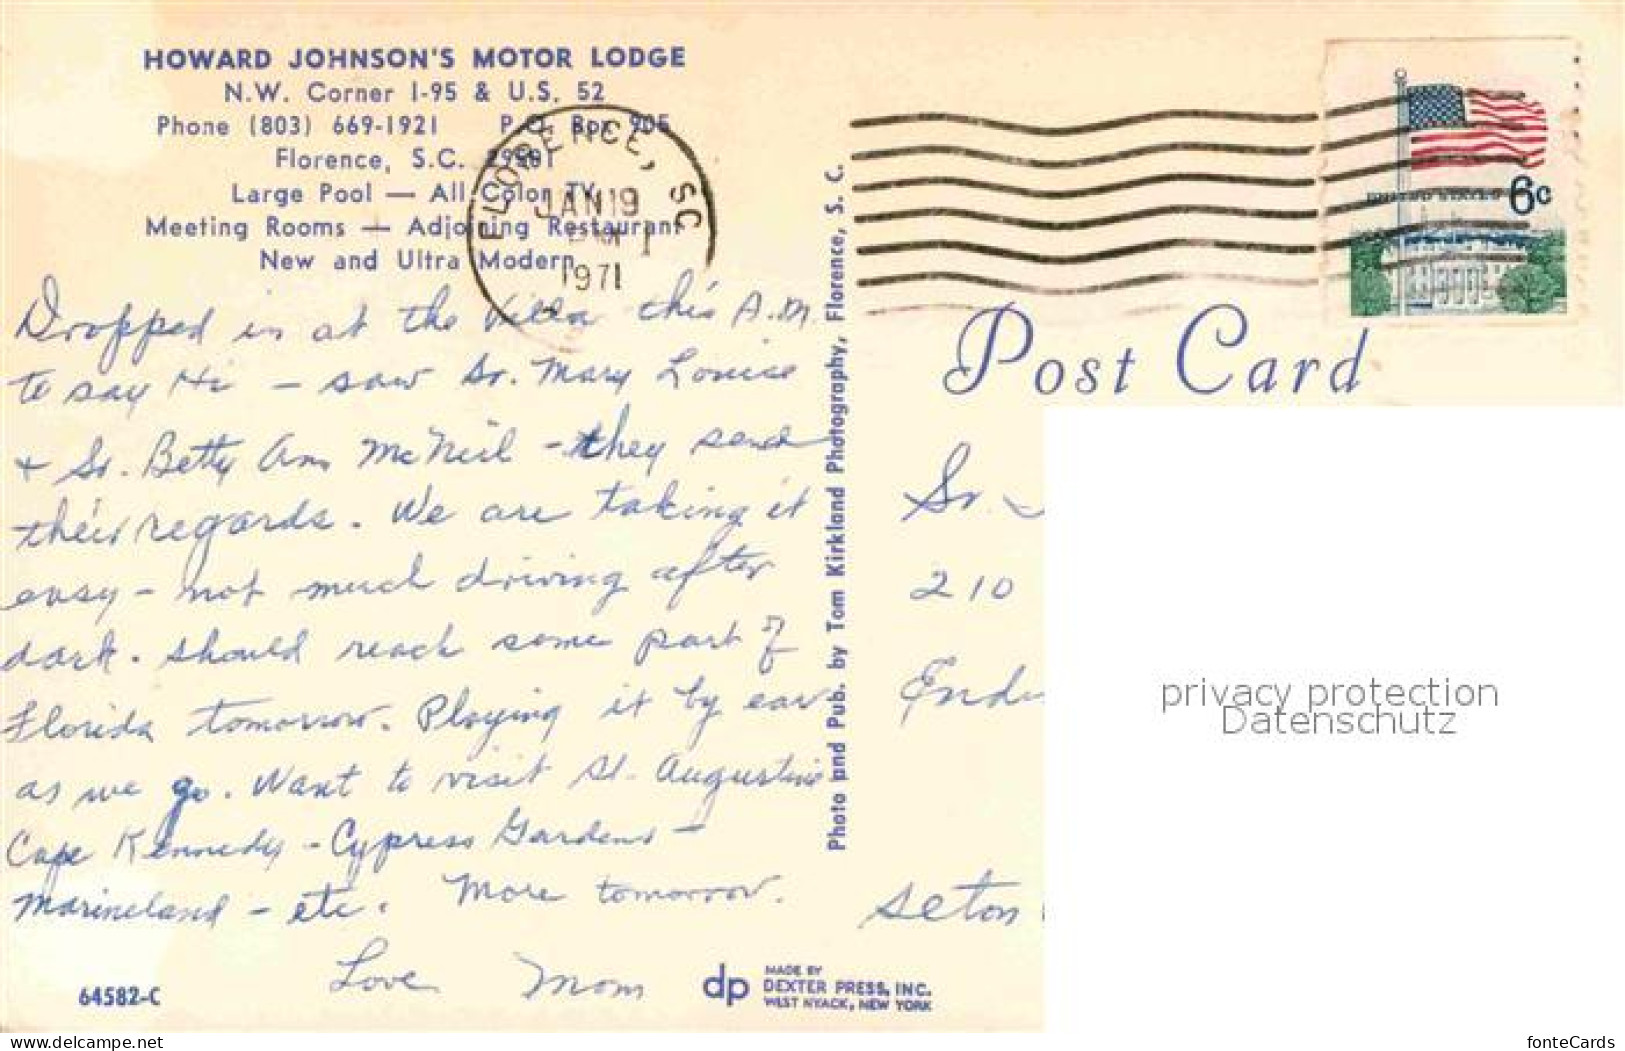 HOWARD JOHNSON'S MOTOR LODGE
N.W. Corner I-95 & U.S. 52
Phone (803) 669-1921 P.O. Box 905
Florence, S.C. 29501
Large Pool — All Color TV
Meeting Rooms — Adjoining Restaurant
New and Ultra Modern
FLORENCE, SC
JAN 19
1971
UNITED STATES 6c
Post Card
Dropped in at the Villa this A.M.
to say Hi - saw Sr. Mary Louise
+ Sr. Betty Ann McNeil - they send
their regards. We are taking it
easy - not much driving after
dark. Should reach some part of
Florida tomorrow. Playing it by ear
as we go. Want to visit St. Augustine
Cape Kennedy - Cypress Gardens -
Marineland - etc. More tomorrow.
Love Mom
64582-C
dp MADE BY
DEXTER PRESS, INC.
WEST NYACK, NEW YORK
Photo and Pub. by Tom Kirkland Photography, Florence, S. C.
Sr.
210
Seton
privacy protection
Datenschutz
www.delcampe.net
fonteCards